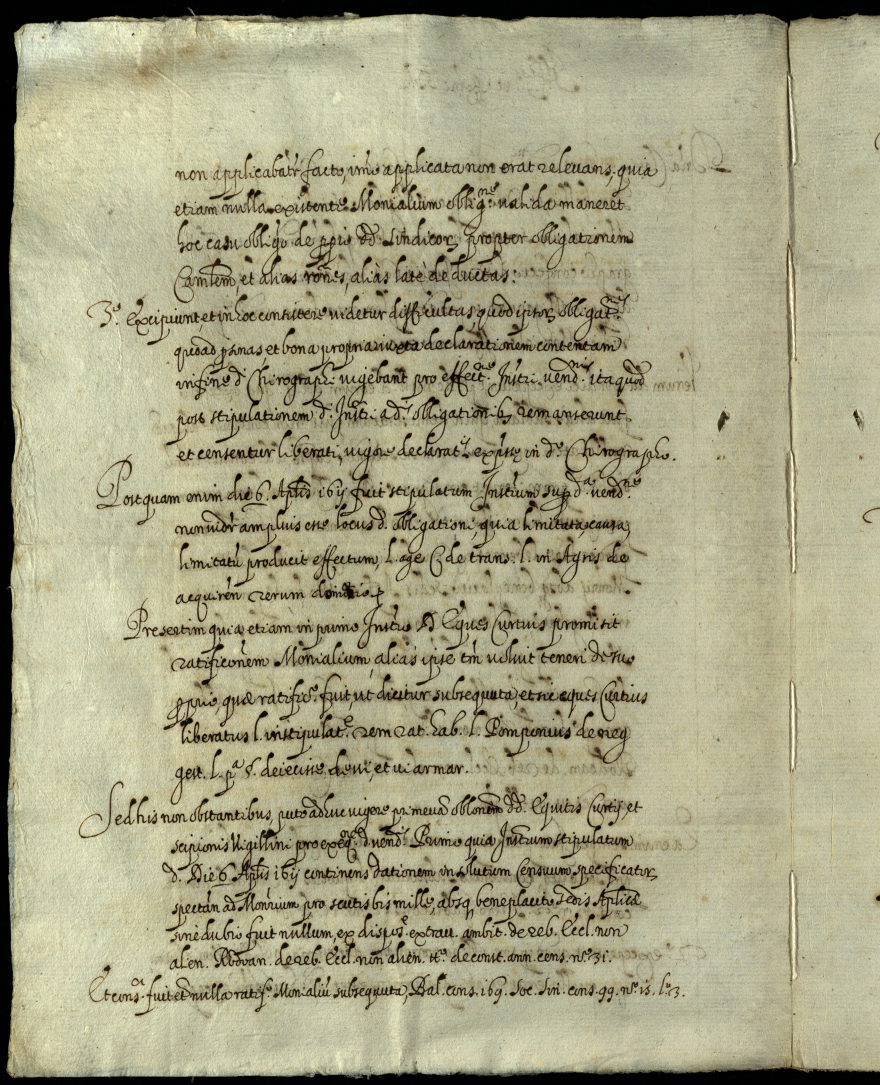 non applicabatr̃ facto, imò applicata non erat relevans, quia
etiam nulla existente Monialium oblig.ne valida maneret
hoc casu obligo de ppris DD. Sindicor, propter obligationem
Camlem, et alias rõnes, alias latè deductas:
3.o Excipiunt, et in hoc consistere videtur difficultas, quod ipsor obligat.s
quoad psonas, et bona propria iuxta declarationem contentam
in fine d. Chirographi vigebant pro effect.ne Instri vend.ni ita quod
post stipulationem d. Instri ad obligationib remanserunt
et censentur liberati, vigore declarat.s expsse in d.o Chirographo.
Postquam enim die 6. Aplis 1611 fuit stipulatum Instrum sup.d.a vend.ne
non vidr amplius esse locus d. obligationi, quia limitata causa,
limitatũ producit effectum, l. age C. de trans. l. in Agris de
acquiren rerum dominio
Presertim quia etiam in primo Instro D Eques Curtius promisit
ratificonem Monialium, alias ipse tm voluit teneri de suo
pprio, quæ ratific.o fuit, ut dicitur subsequuta, et sic eques Curtius
liberatus l. in stipulat.e rem rat. hab. l. Pomponius de neg
gest. l. p.a §. deiecisse de vi, et vi armar.
Sed his non obstantibus, puto adhuc vigere primevã oblonem DD. Equitis Curtij, et
Scipionis Vigillini pro exeq.ne d. vend.s Primo quia Instrum stipulatum
d. Die 6 Aplis 1611 continens dationem in solutum Censuum specificator,
spectañ ad Monrium pro scutis bis mille, absq beneplacito Sedis Aplicæ
sine dubio fuit nullum, ex dispos.e extrav. ambit. de reb. Eccl. non
alen. Rodoan. de reb. Eccl. non alien. tt.o de const. ann. cens. n.o 31.
Et cons.a fuit et nulla ratif.o Monialiũ subsequuta, Bal. cons. 169. Soc. Sin. cons. 99. n.o 15. l.o 3.